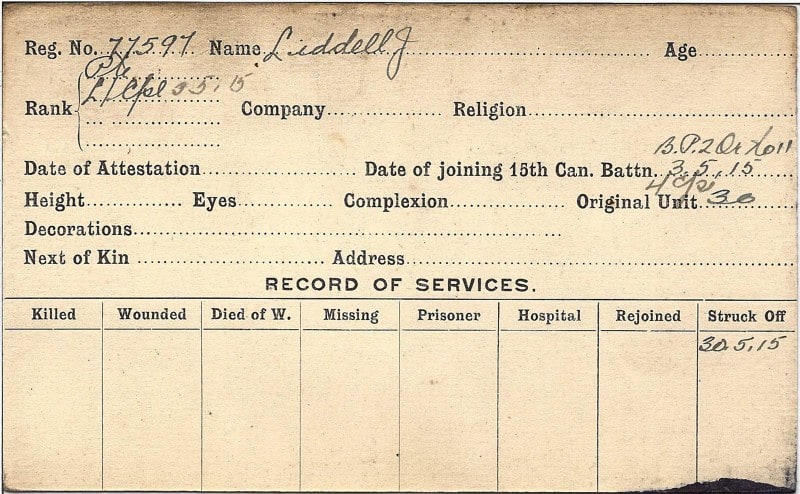 Reg. No. 77597 Name Liddell J Age
Pte
Rank L/Cpl 3 5.15 Company Religion
B.P.2 Or
Date of Attestation Date of joining 15th Can. Battn. 3.5.15
Height Eyes Complexion Original Unit 30
Decorations
Next of Kin Address
RECORD OF SERVICES.
Killed Wounded Died of W. Missing Prisoner Hospital Rejoined Struck Off
30.5.15